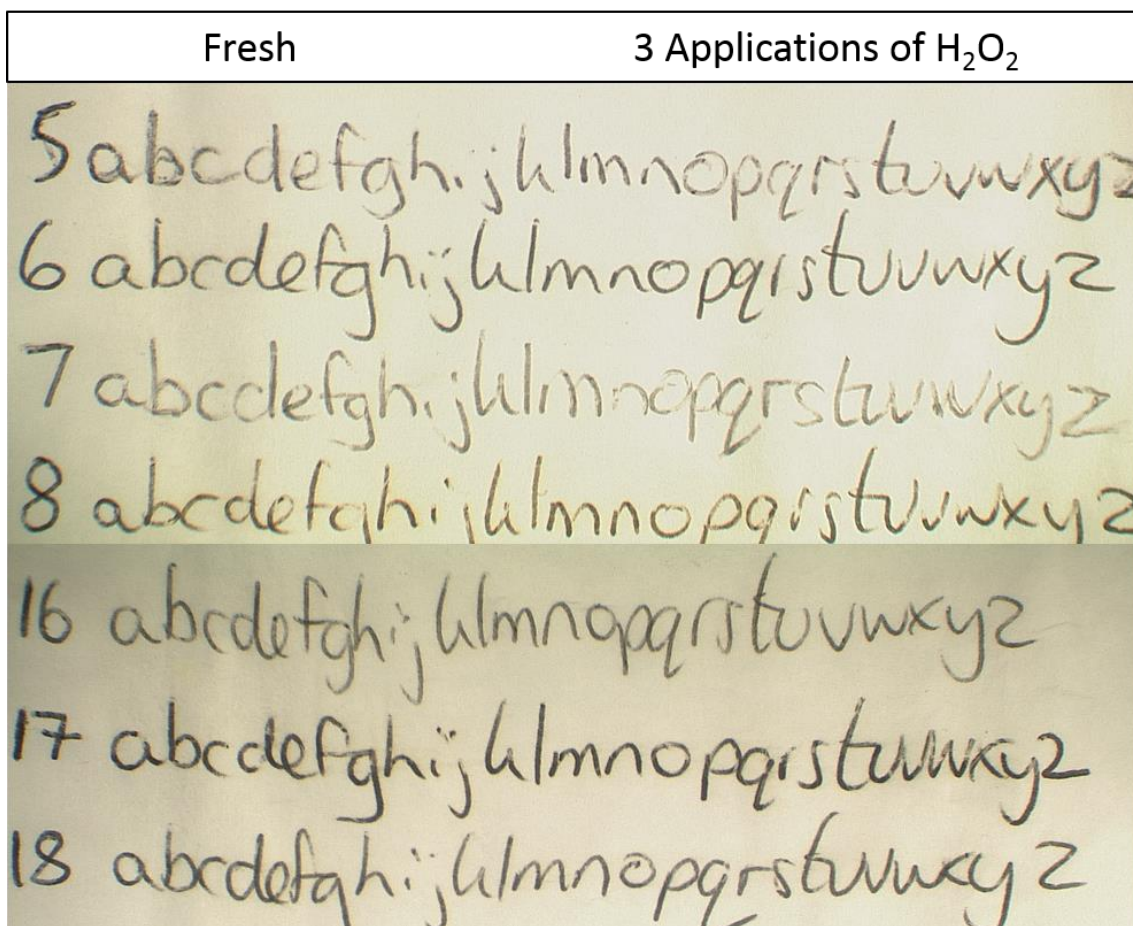 Fresh 3 Applications of H₂O₂
5 abcdefghijklmnopqrstuvwxyz
6 abcdefghijklmnopqrstuvwxyz
7 abcdefghijklmnopqrstuvwxyz
8 abcdefghijklmnopqrstuvwxyz
16 abcdefghijklmnopqrstuvwxyz
17 abcdefghijklmnopqrstuvwxyz
18 abcdefghijklmnopqrstuvwxyz